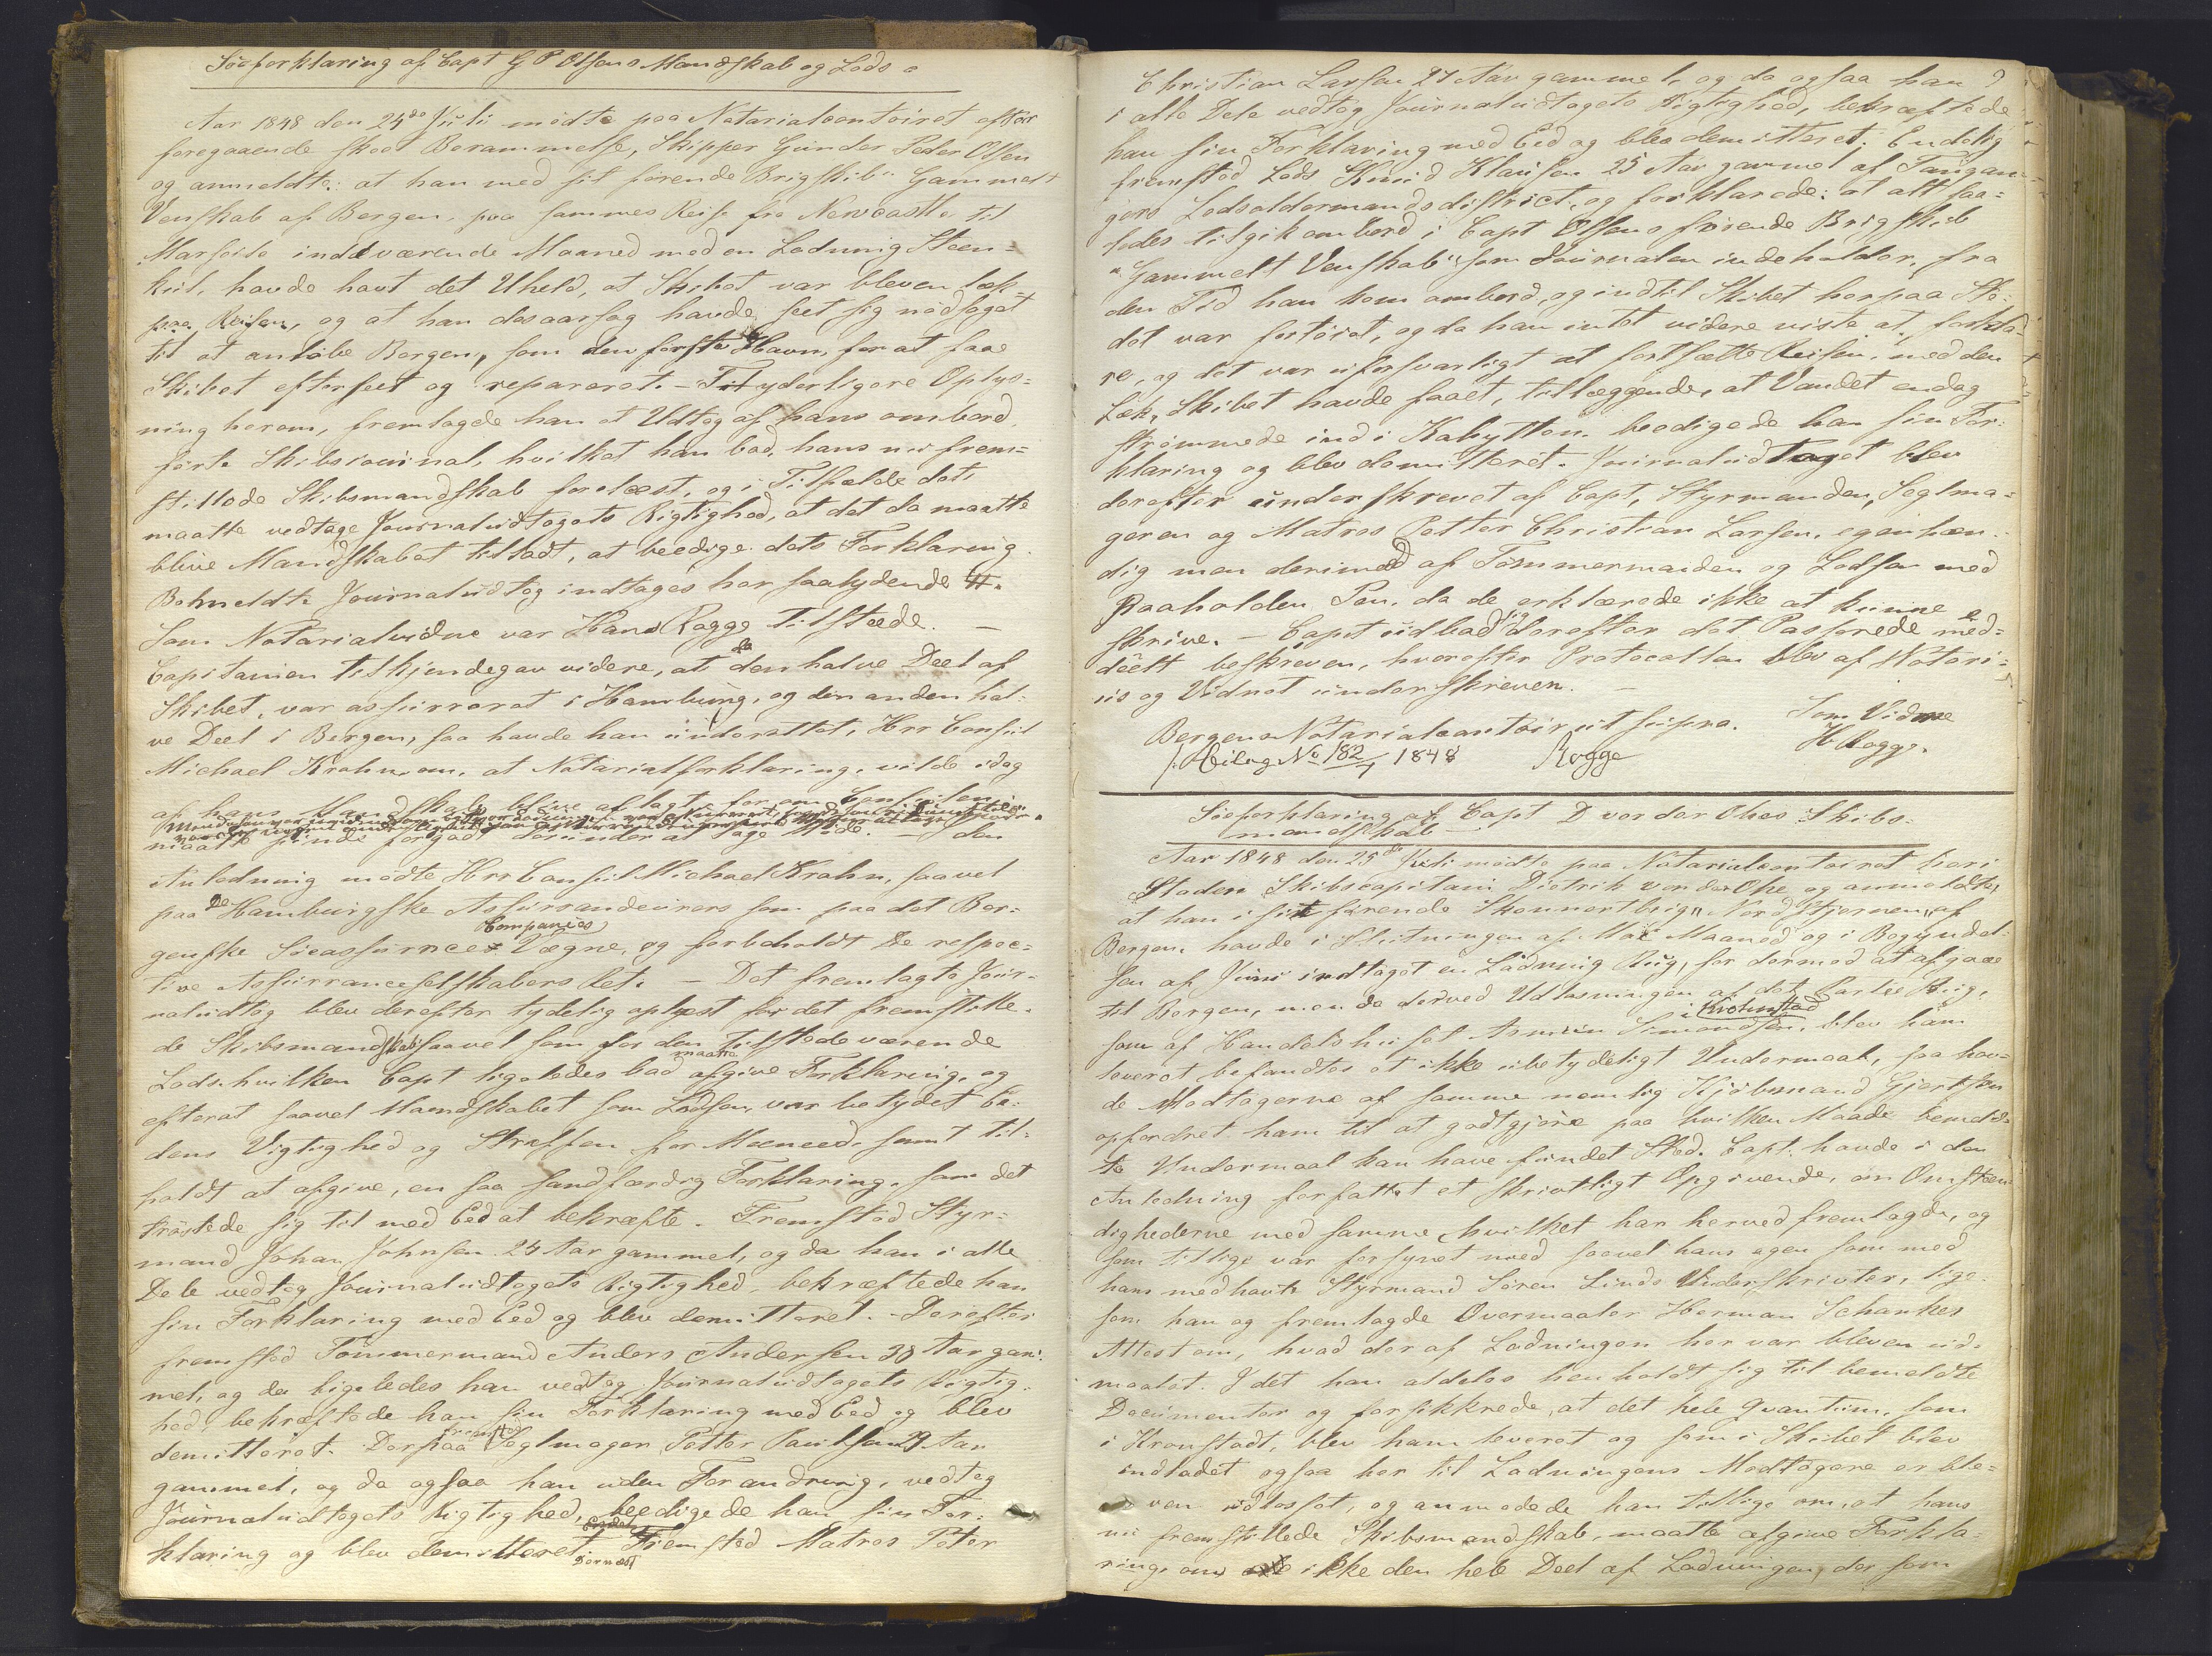 Søeforklaring af Capt G P Olsens Mandskab og Lods.
Aar 1848 den 24de Juli mødte paa Notarialcontoiret efter
foregaaende skeet Berammelse, Skipper Gunder Peder Olsen
og anmeldte: at han med sit førende Brigskib "Gammelt
Venskab af Bergen, paa sammes Reise fra Newcastle til
Marseile inddeværende Maaned med en Ladning Steen-
kul, havde havt det Uheld, at Skibet var bleven læk
paa Reisen, og at han desaarsag havde seet sig nødsaget
til at anløbe Bergen, som den første Havn, for at faae
Skibet efterseet og repareret. - Til yderligere Oplys-
ning herom, fremlagde han et Udtog af hans ombord
førte Skibsiournal, hvilket han bad, hans nu frem-
stillede Skibsmandskab forelæst, og i Tilfælde det
maatte vedtage Journaludtogets Rigtighed, at det da maatte
blive Mandskabet tilladt, at beedige dets Forklaring.
Bemeldte Journaludtog indtages her saalydende
Som Notarialvidne var Hans Rogge tilstæde. -
Capitainen tilkjendegav videre, at da den halve Deel af
Skibet, var assurreret i Hamburg, og den anden hal-
ve Deel i Bergen, saa havde han underrettet, Hrr Consul
Michael Krohn, om, at Notarialforklaring, vilde idag
af hans Mandskab blive aflagt, for om Consulen
maatte finde forgodt derunder at tage den
Anledning mødte Hrr Consul Michael Krohn, saavel
paa de Hamburgske Assurrandeurers som paa det Ber-
Compagnies
genske Søeassurnce Vægne, og forbeholdt de respec-
tive Assurranceselskabers Ret. - Det fremlagte Jour-
naludtog blev derefter tydelig oplæst for det fremstille-
de Skibsmandskab saavel som for den tilstedeværende
maatte
Lods, hvilken Capt ligeledes bad afgive Forklaring, og
efterat saavel Mandskabet som Lodsen, var betydet Ee-
dens Vigtighed og Straffen for Meeneed, samt til-
holdt at afgive, en saa sandfærdig Forklaring, som det
trøstede sig til med Eed at bekræfte. Fremstod Styr-
mand Johan Johnsen 24 Aar gammel, og da han i alle
Dele vedtog Journaludtogets Rigtighed, bekræftede han
sin Forklaring med Eed og blev demitteret. - Derefter
fremstod Tømmermand Anders Andersen 38 Aar gam-
mel, og da ligeledes han vedtog Journaludtogets Rigtig-
hed, bekræftede han sin Forklaring med Eed og blev
fremstod
demitteret. Derpaa Seglmager Petter Paulsen 29 Aar
gammel, og da ogsaa han uden Forandring, vedtog
Journaludtogets Rigtighed, beedigede han sin For-
klaring og blev demitteret. Fremstod Matros Peter
Dernæst
Christian Larsen 27 Aar gammel, og da ogsaa han
i alle Dele vedtog Journaludtogets Rigtighed, bekræftede
han sin Forklaring med Eed og blev demitteret. Endelig
fremstod Lods Knud Klausen 25 Aar gammel af Tangan-
gers Lodsoldermandsdistrict, og forklarede: at alt saa-
ledes tilgik ombord i Capt Olsens førende Brigskib
"Gammelt Venskab" som Journalen indeholder, fra
den Tid han kom ombord, og indtil Skibet herpaa Ste-
det var fortøiet, og da han intet videre viste at forkla-
re, og det var uforsvarligt at fortsætte Reisen, med den
Læk, Skibet havde faaet, tillæggende, at Vandet endog
strømmede ind i Kahytten. beedigede han sin For-
klaring og blev demitteret. Journaludtoget blev
derefter underskrevet af Capt, Styrmanden, Seglma-
geren og Matros Petter Christian Larsen, egenhæn-
dig men derimod af Tømmermanden og Lodsen med
paaholden Pen, da de erklærede ikke at kunne
skrive. - Capt udbad sig derefter det Passerede med-
deelt beskreven, hvorefter Protocollen blev af Notari-
us og Vidnet underskreven. -
Bergens Notarialcontoir ut supra. Som Vidne
Bilag No 182/7 1848 Rogge H Rogge.
Søeforklaring af Capt D von der Ohes Skibs-
mandskab -
Aar 1848 den 25de Juli mødte paa Notarialcontoiret her i
Staden Skibscapitain Dietrik von der Ohe og anmeldte,
at han i sit førende Skonnertbrig "Nordstjernen" af
Bergen, havde i Slutningen af Mai Maaned og i Begyndel-
sen af Juni indtaget en Ladning Rug, for dermed at afgaae
til Bergen, men da derved Udlosningen af det Partie Rug,
i Kronstad
som af Handelshuset Simondsen, blev ham
leveret befandtes et ikke ubetydeligt Undermaal, saa hav-
de Modtagerne af samme nemlig Kjøbmand Gjertsen
opfordret ham til at godtgjøre paa hvilken Maade bemeld-
te Undermaal kan have fundet Sted. Capt. havde i den
Anledning forfattet et skrivtligt Opgivende, om Omstæn-
dighederne med samme, hvilket han herved fremlagde, og
som tillige var forsynet med saavel hans egen som med
hans medhavte Styrmand Søren Linds Underskrivter, lige-
som han og fremlagde Overmaaler Herman Schankes
Attest om, hvad der af Ladningen her var bleven ud-
maalet. I det han aldeles henholdt sig til bemeldte
Documenter og forsikkrede, at det hele Qvantum, som
i Kronstadt, blev ham leveret og som i Skibet blev
indladet ogsaa her til Ladningens Modtagere er ble-
ven udlosset, og anmodede han tillige om, at hans
nu fremstillede Skibsmandskab, maatte afgive Forkla
ring, om ikke den hele Deel af Ladningen, der som